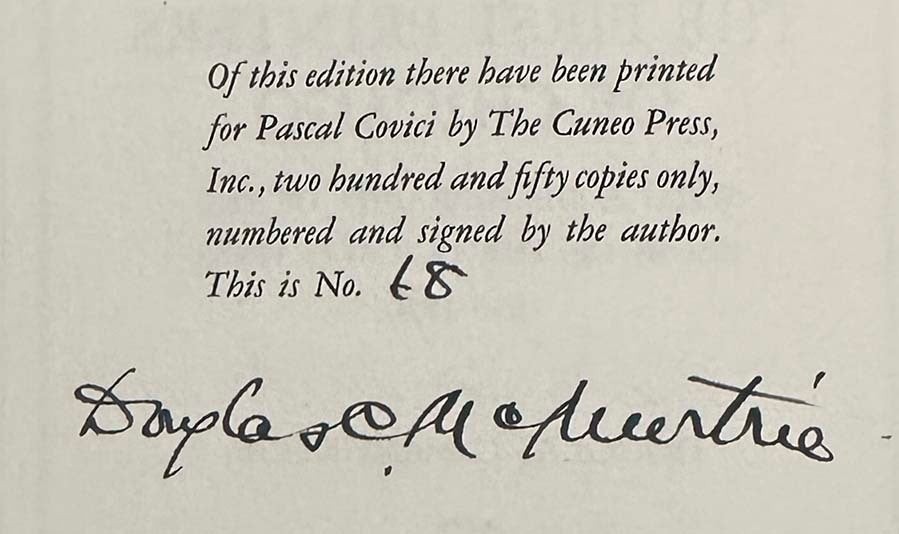 Of this edition there have been printed
for Pascal Covici by The Cuneo Press,
Inc., two hundred and fifty copies only,
numbered and signed by the author.
This is No. 68
Douglas C. McMurtrie